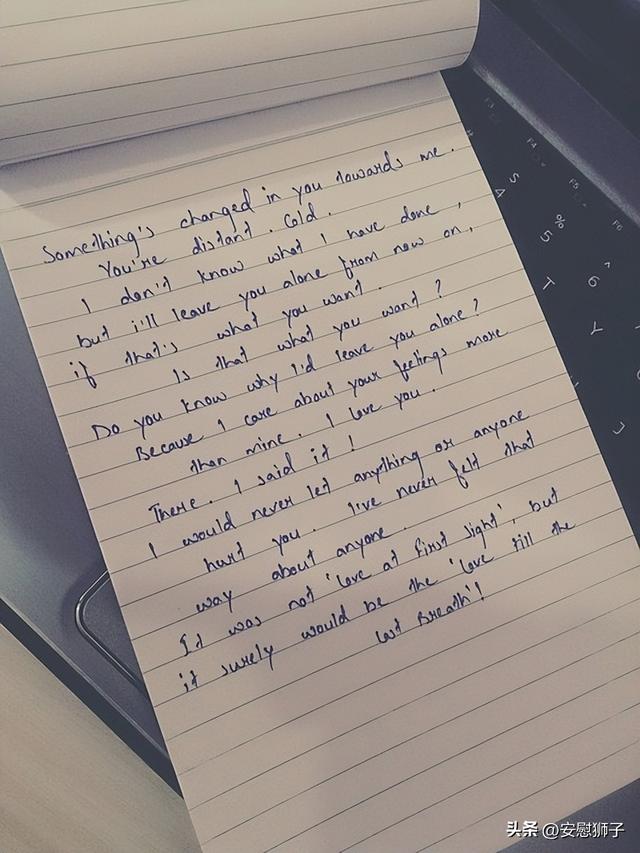 Something's changed in you towards me.
You're distant. Cold.
I don't know what I have done,
but i'll leave you alone from now on,
if that's what you want.
Is that what you want?
Do you know why I'd leave you alone?
Because I care about your feelings more
than mine. I love you.
There. I said it!
I would never let anything or anyone
hurt you. I've never felt that
way about anyone.
It was not 'love at first sight', but
it surely would be the 'love till the
last Breath'!
F3
F4
F5
F6
$
4
%
5
^
6
T
Y
J
头条 @安慰狮子